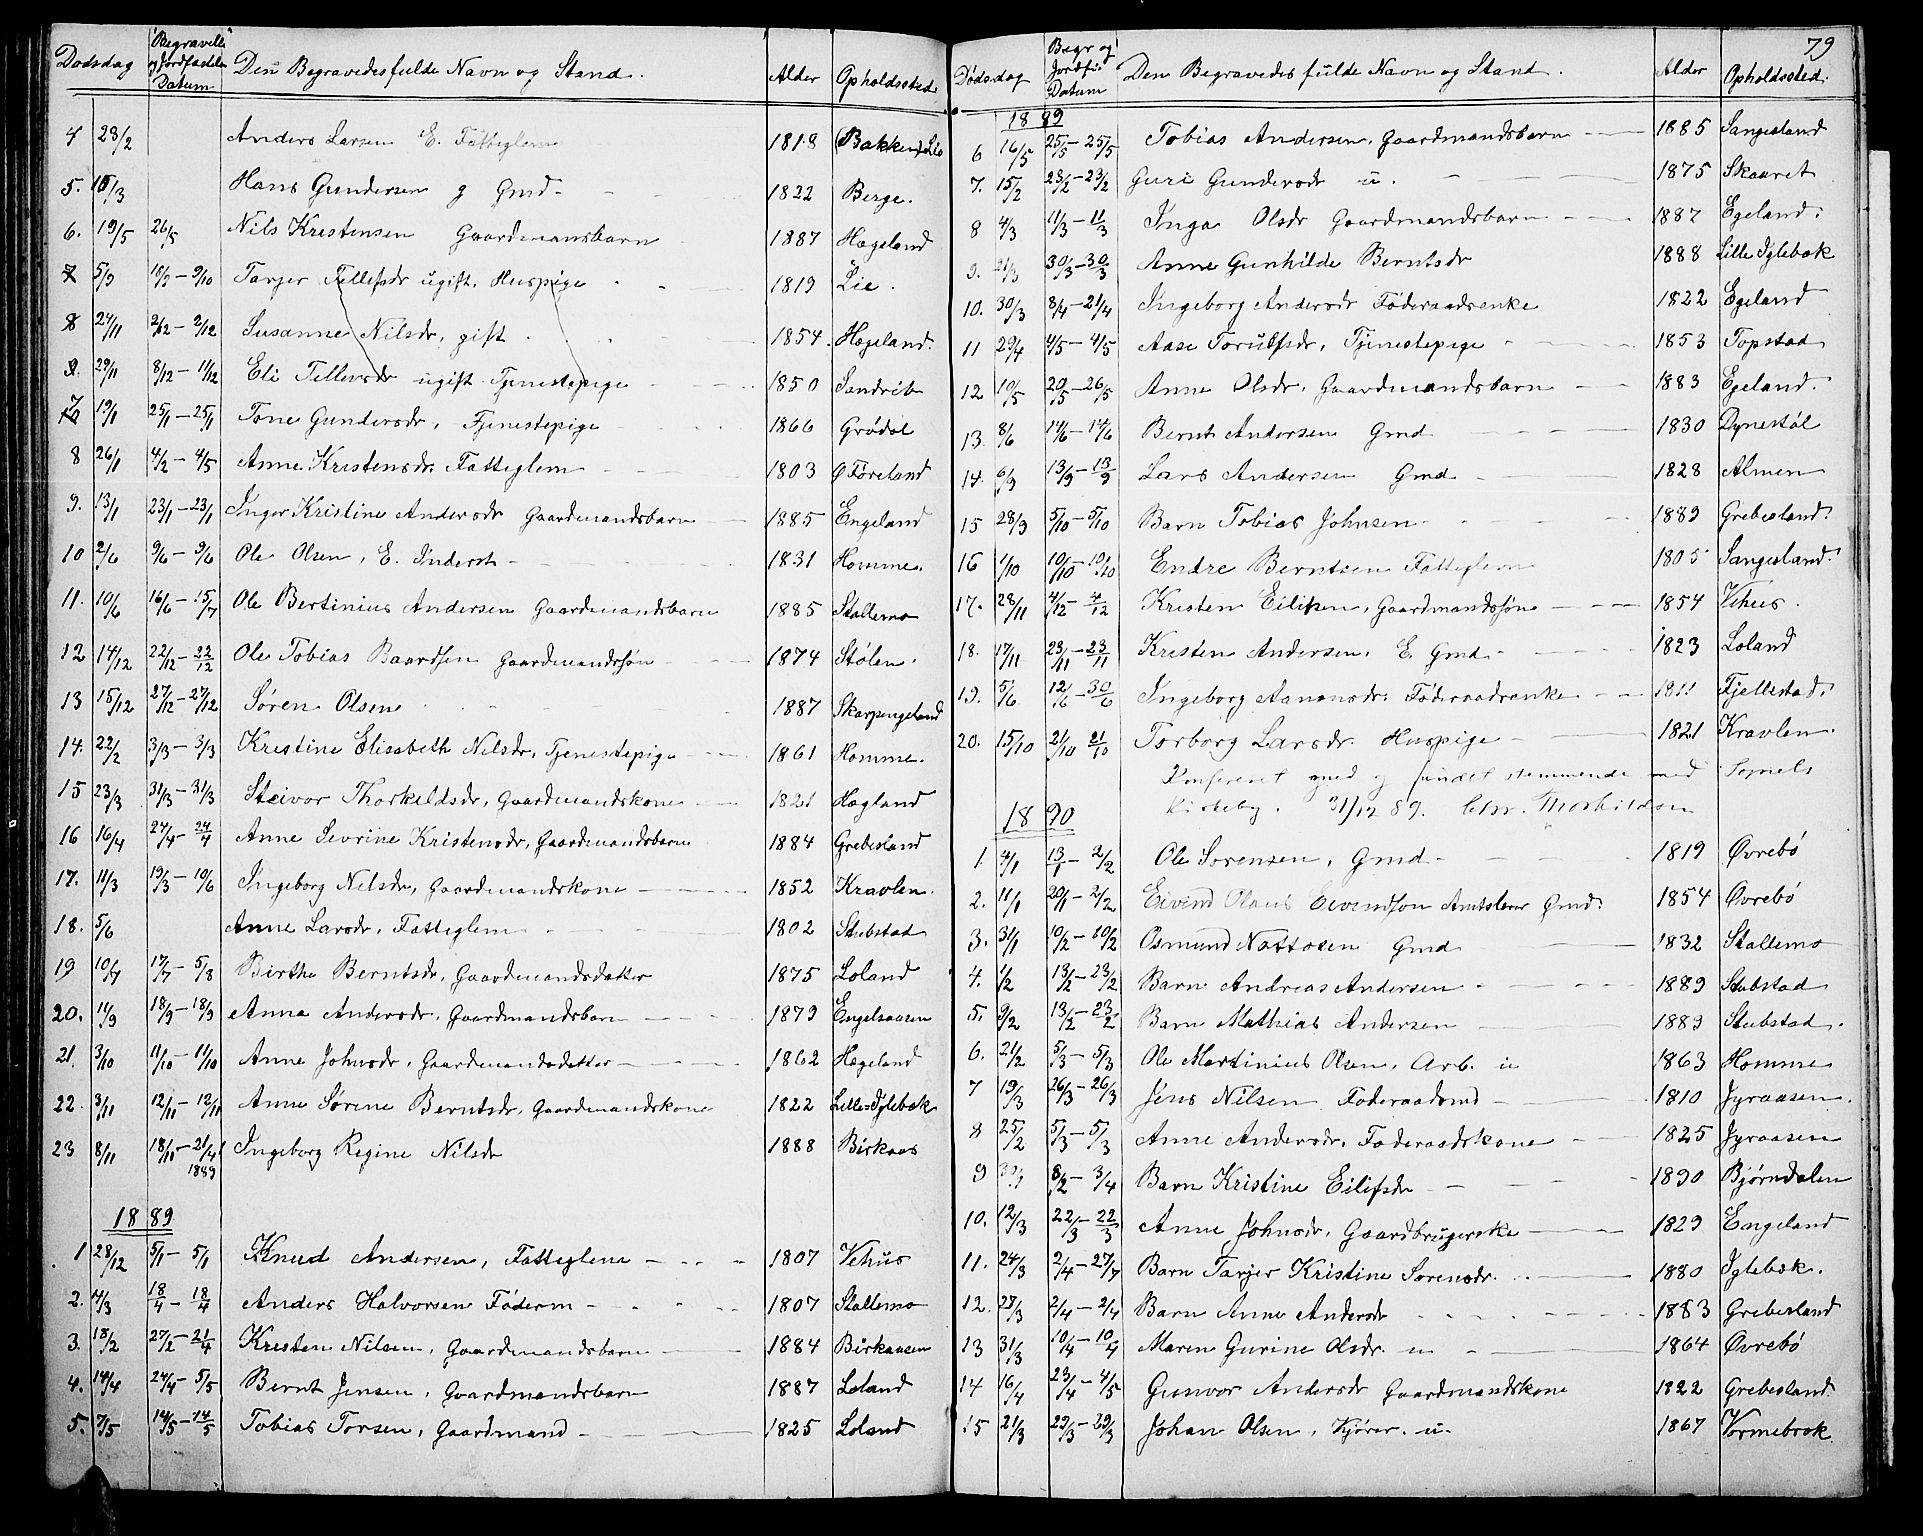 Dødsdag Begravelse og Jordfæstelse Datum Den Begravedes fulde Navn og Stand. Alder Opholdssted
4 23/2 Anders Larsen E. Fattiglem 1818 (Bakken) Lie
5. 15/3 Hans Gundersen g Gmd. 1822 Berge.
6. 19/5 26/5 Nils Kristensen Gaardmansbarn 1887 Hægeland
7 5/9 18/9 - 9/10 Tarjer Tellefsdr ugift. Huspige 1819 Lie.
8 24/11 2/12 - 2/12 Susanne Nilsdr, gift 1854. Hægeland.
9. 29/11 8/12 - 11/12 Eli Tellevsdr ugift Tjenestepige 1850 Sandrib
7 19/1 25/1 - 25/1 Tone Gundersdr, Tjenestepige 1866 Grødol
8 26/1 4/2 - 4/5 Anne Kristensdr. Fattiglem 1803 Føreland
9. 13/1 23/1 - 23/1 Inger Kristine Andersdr Gaardmandsbarn 1885 Engeland
10 2/6 9/6 - 9/6 Ole Olsen, E. Inderst 1831 Homme.
11. 10/6 16/6 - 15/7 Ole Bertinius Andersen Gaardmandsbarn 1885 Stallemo
12 14/12 22/12 - 22/12 Ole Tobias Baardsen Gaardmandssøn 1874 Stølen.
13 15/12 27/12 - 27/12 Søren Olsen 1887 Skarpengeland
14. 22/2 3/3 - 3/3 Kristine Elisabeth Nilsdr, Tjenestepige 1861 Homme.
15 23/3 31/3 - 31/3 Steivor Thorkildsdr, Gaardmandskone 1821 Hægland
16 16/4 24/4 - 24/4 Anne Sevrine Kristensdr, Gaardmandsbarn 1884 Grebesland
17. 11/3 19/3 - 10/6 Ingeborg Nilsdr, Gaardmandskone 1852 Kravlen.
18. 5/6 Anne Larsdr, Fattiglem 1802 Stubstad
19 10/7 17/7 - 5/8 Birthe Berntsdr, Gaardmandsdatter 1875 Loland
20. 11/9 18/9 - 18/9 Anna Andersdr. Gaardmandsbarn 1879 Engelsaasen
21. 3/10 11/10 - 11/10 Anne Johnsdr, Gaardmandsdatter 1862 Hægeland
22. 3/11 12/11 - 12/11 Anne Sørine Berntsdr, Gaardmandskone 1822 Lille=Iglebæk
23 8/11 18/11 - 21/4 1889 Ingeborg Regine Nilsdr 1888 Birkaas
1889
1 28/12 5/1 - 5/1 Knud Andersen, Fattiglem 1807 Vehus
2. 4/3 18/4 - 18/4 Anders Halvorsen Føderm 1807 Stallemo
3. 18/2 27/2 - 21/4 Kresten Nilsen, Gaardmandsbarn 1884 Birkaasen
4. 14/4 24/4 - 5/5 Bernt Jensen, Gaardmandsbarn 1887 Loland
5. 7/5 14/5 - 14/5 Tobias Torsen, Gaardmand 1825 Loland
79
Dødsdag Begr og Jordfæ. Datum Den Begravedes fulde Navn og Stand. Alder Opholdssted.
1889
6 16/5 25/5 - 25/5 Tobias Andersen, Gaardmandsbarn 1885 Sangesland
7. 15/2 23/2 - 23/2 Guri Gundersdr u. 1875 Skaaret
8 4/3 11/3 - 11/3 Inga Olsdr Gaardmandsbarn 1887 Egeland.
9. 21/3 30/3 - 30/3 Anne Gunhilde Berntsdr 1888 Lille Iglebæk
10. 30/3 8/4 - 21/4 Ingeborg Andersdr Føderaadsenke 1822 Egeland
11 29/4 4/5 - 4/5 Aase Torulfsdr, Tjenestepige 1853 Topstad
12 10/5 20/5 - 26/5 Anne Olsdr, Gaardmandsbarn 1883 Egeland.
13. 8/6 14/6 - 14/6 Bernt Andersen Gmd 1830 Dynestøl
14. 6/9 13/9 - 13/9 Lars Andersen Gmd 1828 Almen
15 28/9 5/10 - 5/10 Barn Tobias Johnsen 1889 Grebesland.
16 1/10 10/10 - 10/10 Endre Berntsen Fattiglem 1805 Sangesland.
17. 28/11 4/12 - 4/12 Kristen Eilifsen, Gaardmandssøn 1854 Vehus.
18. 17/11 23/11 - 23/11 Kristen Andersen. E. Gmd 1823 Loland
19. 5/6 12/6 - 30/6 Ingeborg Aanensdr. Føderaadsenke 1811 Fjellestad.
20. 15/10 21/10 21/10 Torborg Larsdr. Huspige 1821 Kravlen.
Konfereret med og fundet stemmende med Sognets
Kirkebog. 31/12 89. Chr. Thorkildsen
1890
1. 4/1 13/1 - 2/2 Ole Sorensen, Gmd 1819 Øvrebø
2. 11/1 20/1 - 2/2 Eivind Olaus Eivendson Amtslærer Gmd. 1854 Øvrebø
3. 31/1 10/2 - 10/2 Osmund Nattosen Gmd 1832 Stallemo
4. 1/2 13/2 - 23/2 Barn Andreas Andersen 1889 Stubstad
5. 9/2 13/2 - 23/2 Barn Mathias Andersen 1889 Stubstad.
6. 21/2 5/3 - 5/3 Ole Martinius Olsen, Arb. u 1863 Homme
7 19/3 26/3 - 26/3 Jens Nilsen Føderaadsmd 1810 Jyraasen.
8 25/2 5/3 - 5/3 Anne Andersdr, Føderaadskone 1825 Jyraasen
9 30/1 8/2 - 3/4 Barn Kristine Eilifsdr 1890 Bjørndalen
10. 12/3 22/3 - 22/3 Anne Johnsdr, Gaardbrugerske 1829 Engeland
11. 24/3 2/4 - 27/7 Barn Tarjer Kristine Sorensdr. 1880 Iglebæk.
12. 28/3 2/4 - 2/4 Barn Anne Andersdr 1883 Grebesland
13 31/3 10/4 - 10/4 Maren Gurine Olsdr u 1864 Øvrebø
14 16/4 23/4 - 4/5 Gunvor Andersdr Gaardmandskone 1822 Grebesland.
15 21/3 29/3 - 29/3 Johan Olsen, Kjører. u. 1867 Vormebrok